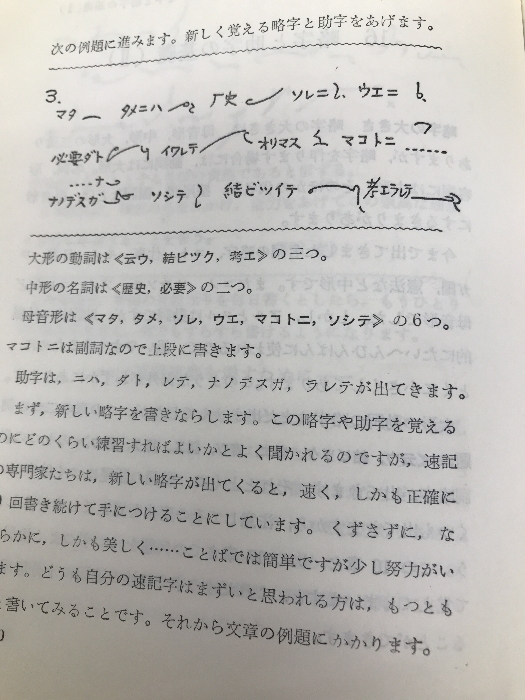 次の例題に進みます。新しく覚える略字と助字をあげます。
3.
マタ タメニハ 厂史 ソレニ ウエニ
必要ダト イワレテ オリマス マコトニ……
……ナ
ナノデスガ ソシテ 結ビツイテ 考エラレテ
大形の動詞は《云ウ，結ビツク，考エ》の三つ。
中形の名詞は《歴史，必要》の二つ。
母音形は《マタ，タメ，ソレ，ウエ，マコトニ，ソシテ》の６つ。
マコトニは副詞なので上段に書きます。
助字は，ニハ，ダト，レテ，ナノデスガ，ラレテが出てきます。
まず，新しい略字を書きならします。この略字や助字を覚える
のにどのくらい練習すればよいかとよく聞かれるのですが，速記
の専門家たちは，新しい略字が出てくると，速く，しかも正確に
回書き続けて手につけることにしています。くずさずに，な
らかに，しかも美しく……ことばでは簡単ですが少し努力がい
ます。どうも自分の速記字はまずいと思われる方は，もつとも
書いてみることです。それから文章の例題にかかります。